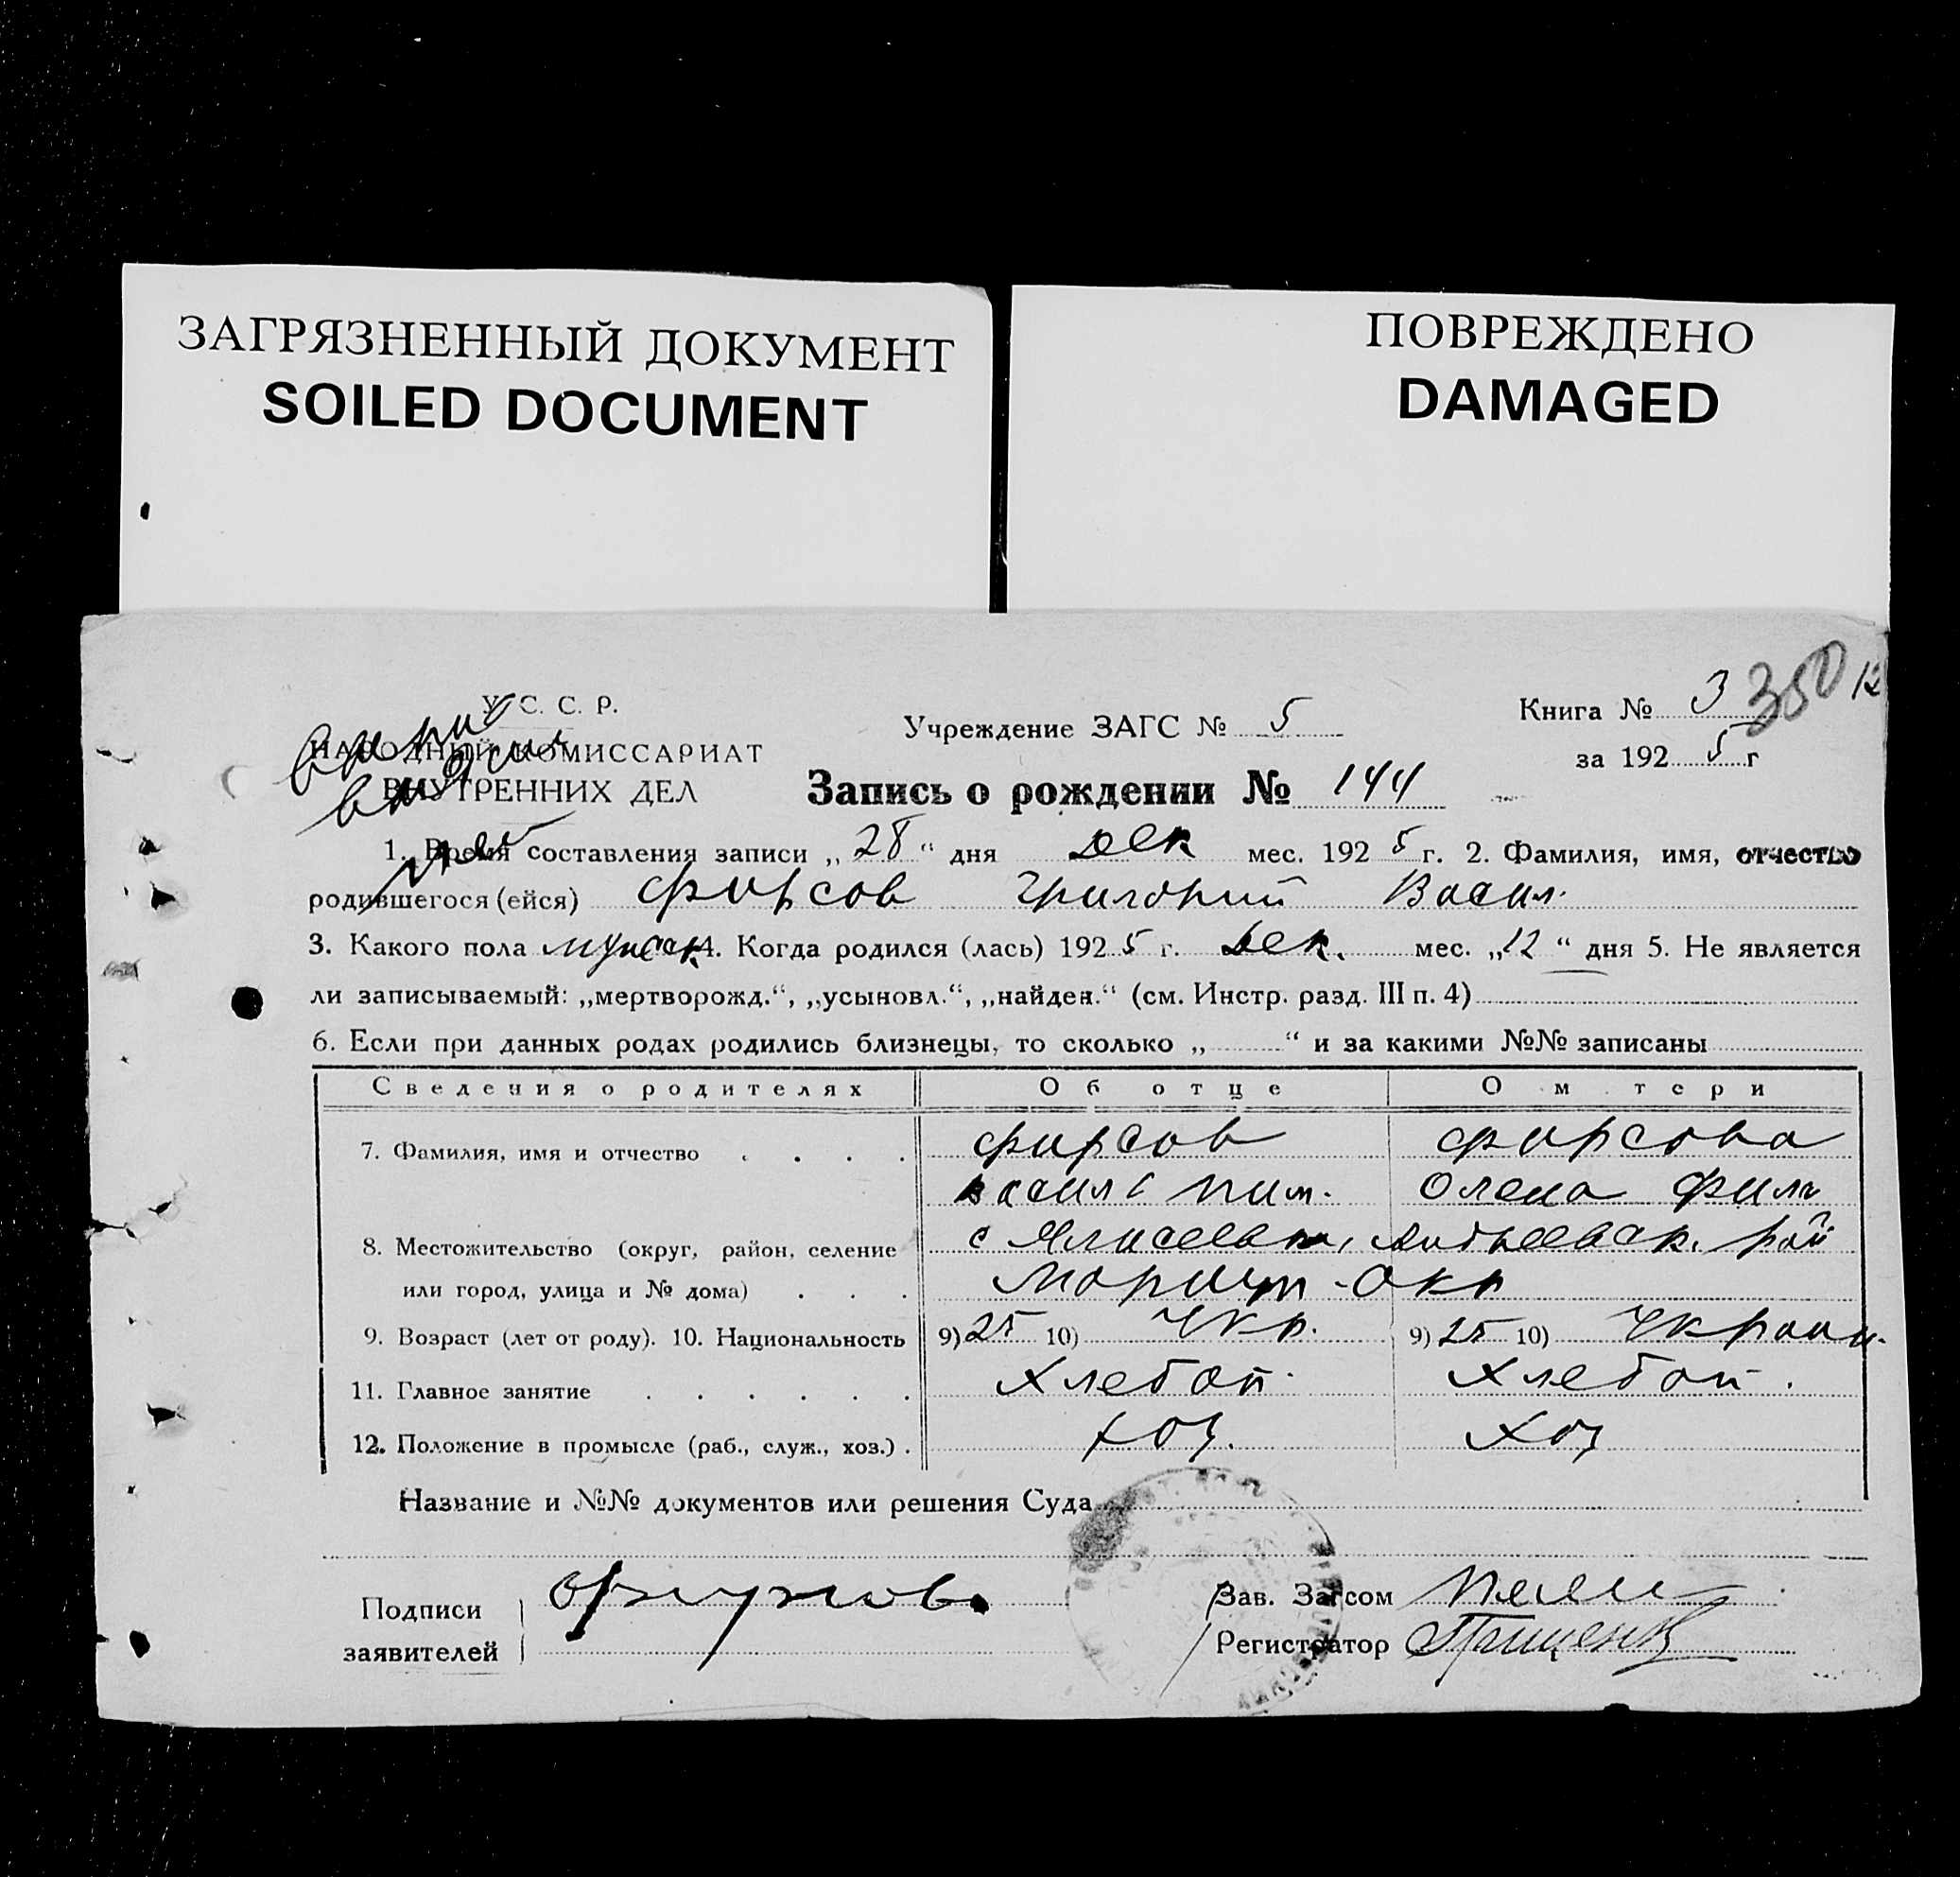 ЗАГРЯЗНЕННЫЙ ДОКУМЕНТ
SOILED DOCUMENT
ПОВРЕЖДЕНО
DAMAGED
У. С. С. Р.
НАРОДНЫЙ КОМИССАРИАТ
ВНУТРЕННИХ ДЕЛ
Учреждение ЗАГС № 5
Книга № 3 350 12
за 1925 г
Запись о рождении № 144
1. Время составления записи „28“ дня дек мес. 1925 г. 2. Фамилия, имя, отчество
родившегося (ейся) Фирсов Григорий Васил.
3. Какого пола мужск 4. Когда родился (лась) 1925 г. Дек. мес. „12“ дня 5. Не является
ли записываемый: „мертворожд.“, „усыновл.“, „найден.“ (см. Инстр. разд. III п. 4)
6. Если при данных родах родились близнецы, то сколько „ “ и за какими №№ записаны
Сведения о родителях Об отце О м тери
7. Фамилия, имя и отчество . . . . Фирсов Фирсова
Василь Пим. Олена Филип
8. Местожительство (округ, район, селение с
или город, улица и № дома) . . . Мариуп - Окр
9. Возраст (лет от роду). 10. Национальность 9) 25 10) Укр. 9) 25 10) Украин.
11. Главное занятие . . . . . . Хлебоп. Хлебоп.
12. Положение в промысле (раб., служ., хоз.) . Хоз. Хоз
Название и №№ документов или решения Суда
Подписи
заявителей
Зав. Загсом
Регистратор Грищенко